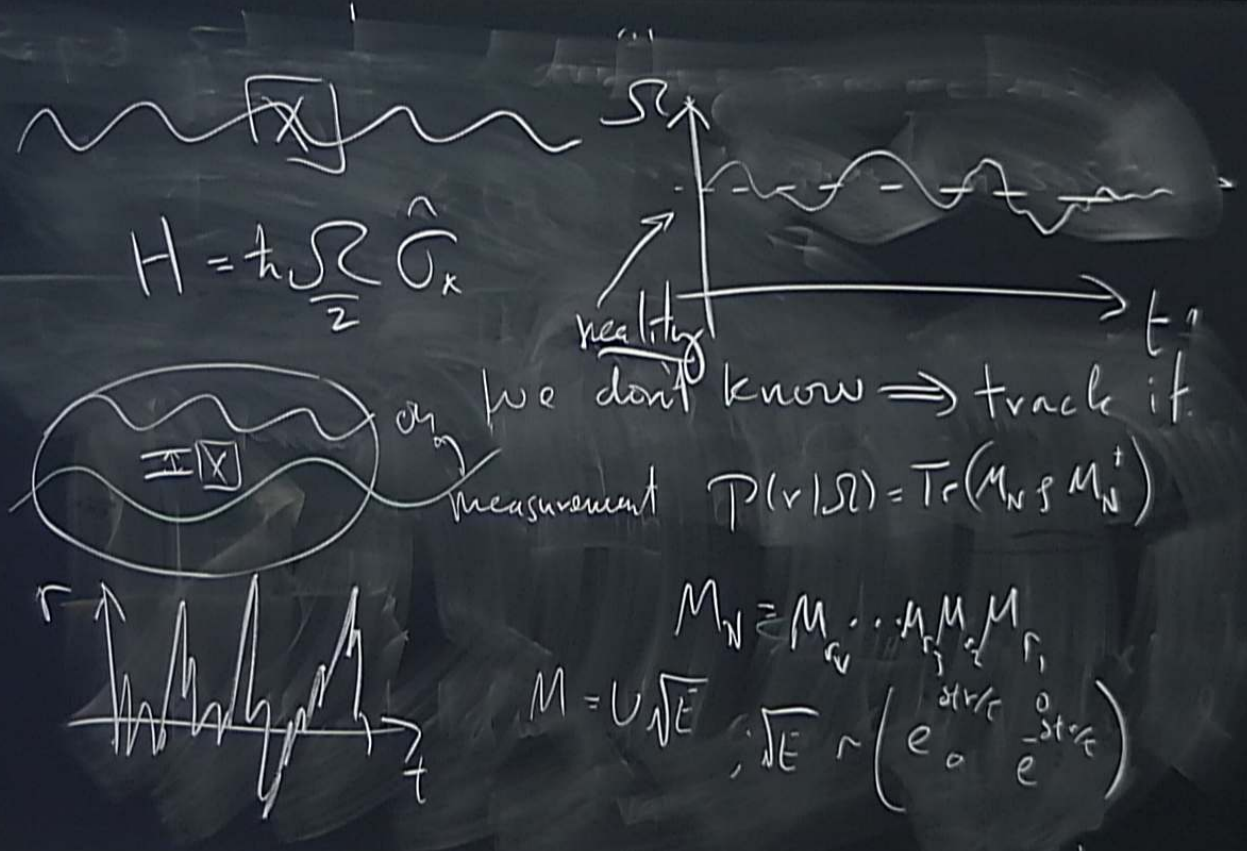 X
Ω
H = ħ Ω/2 σ̂ₓ
reality
t
we don't know ⟹ track it.
X
measurement P(r|Ω) = Tr(M_N ρ M_N†)
r
M_N ≡ M_{r_N} ... M_{r_3} M_{r_2} M_{r_1}
M = U√E ; √E ~ ( e^{δtr/τ} 0
0 e^{-δtr/τ} )
t